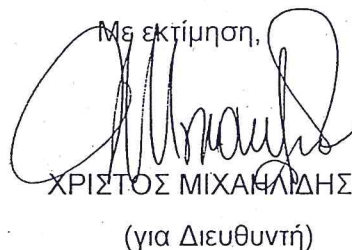 Με εκτίμηση,
ΧΡΙΣΤΟΣ ΜΙΧΑΗΛΙΔΗΣ
(για Διευθυντή)